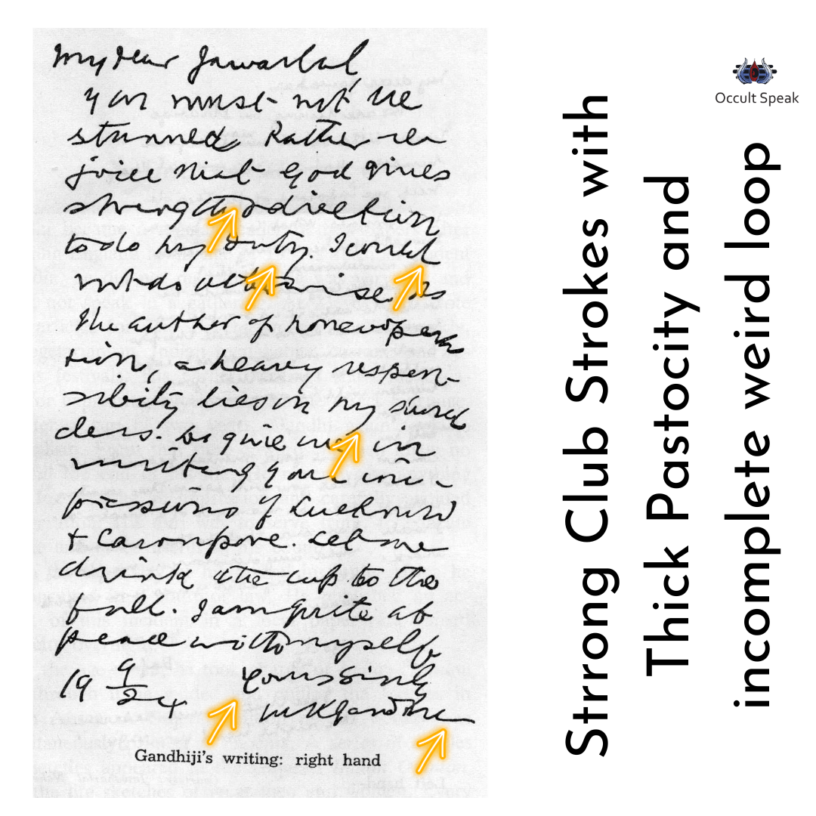 My dear Jawarlal,
You must not be
stunned. Rather re
joice that God gives
strength & direction
to do my duty. I could
not do otherwise. As
the author of noncoopera
tion, a heavy respon-
sibility lies on my shoul
ders. Do give me in
writing your im-
pressions of Lucknow
& Cawnpore. Let me
drink the cup to the
full. I am quite at
peace with myself
19 9/24 Yours
MKGandhi
Gandhiji's writing: right hand
Strrong Club Strokes with
Thick Pastocity and
incomplete weird loop
Occult Speak